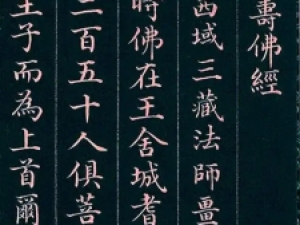 壽佛經
西域三藏法師畺
時佛在王舍城耆
二百五十人俱菩
王子而為上首爾